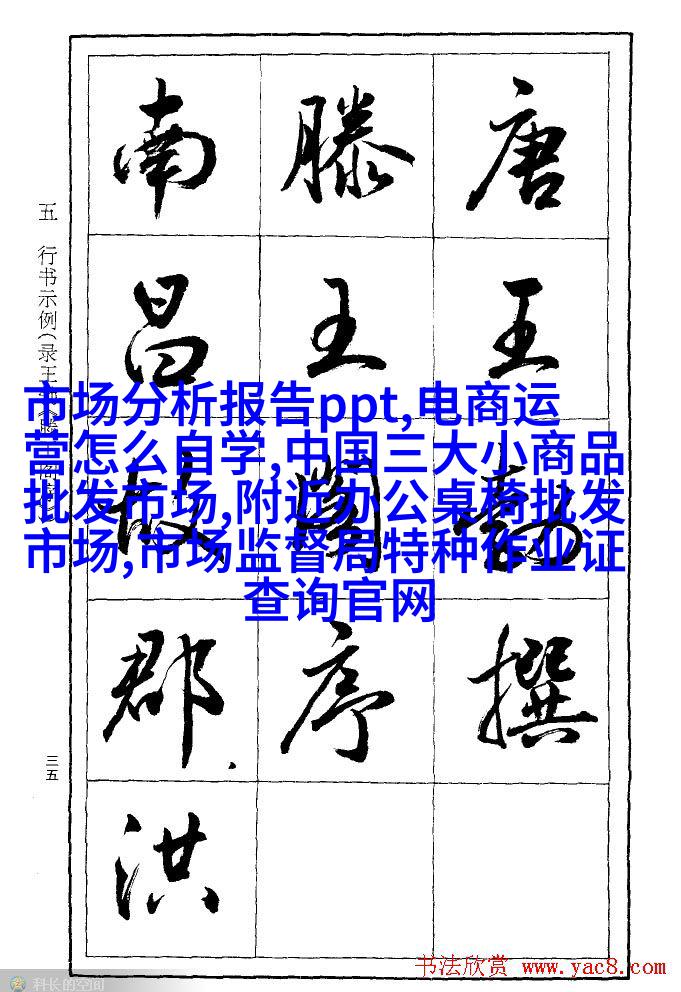 唐王勃撰
滕王阁序
南昌故郡、洪
五 行书示例(录王勃《滕王阁序》)
三五
市场分析报告ppt,电商运
营怎么自学,中国三大小商品
批发市场,附近办公桌椅批发
市场,市场监督局特种作业证
查询官网
书法欣赏 www.yac8.com
科长的空间